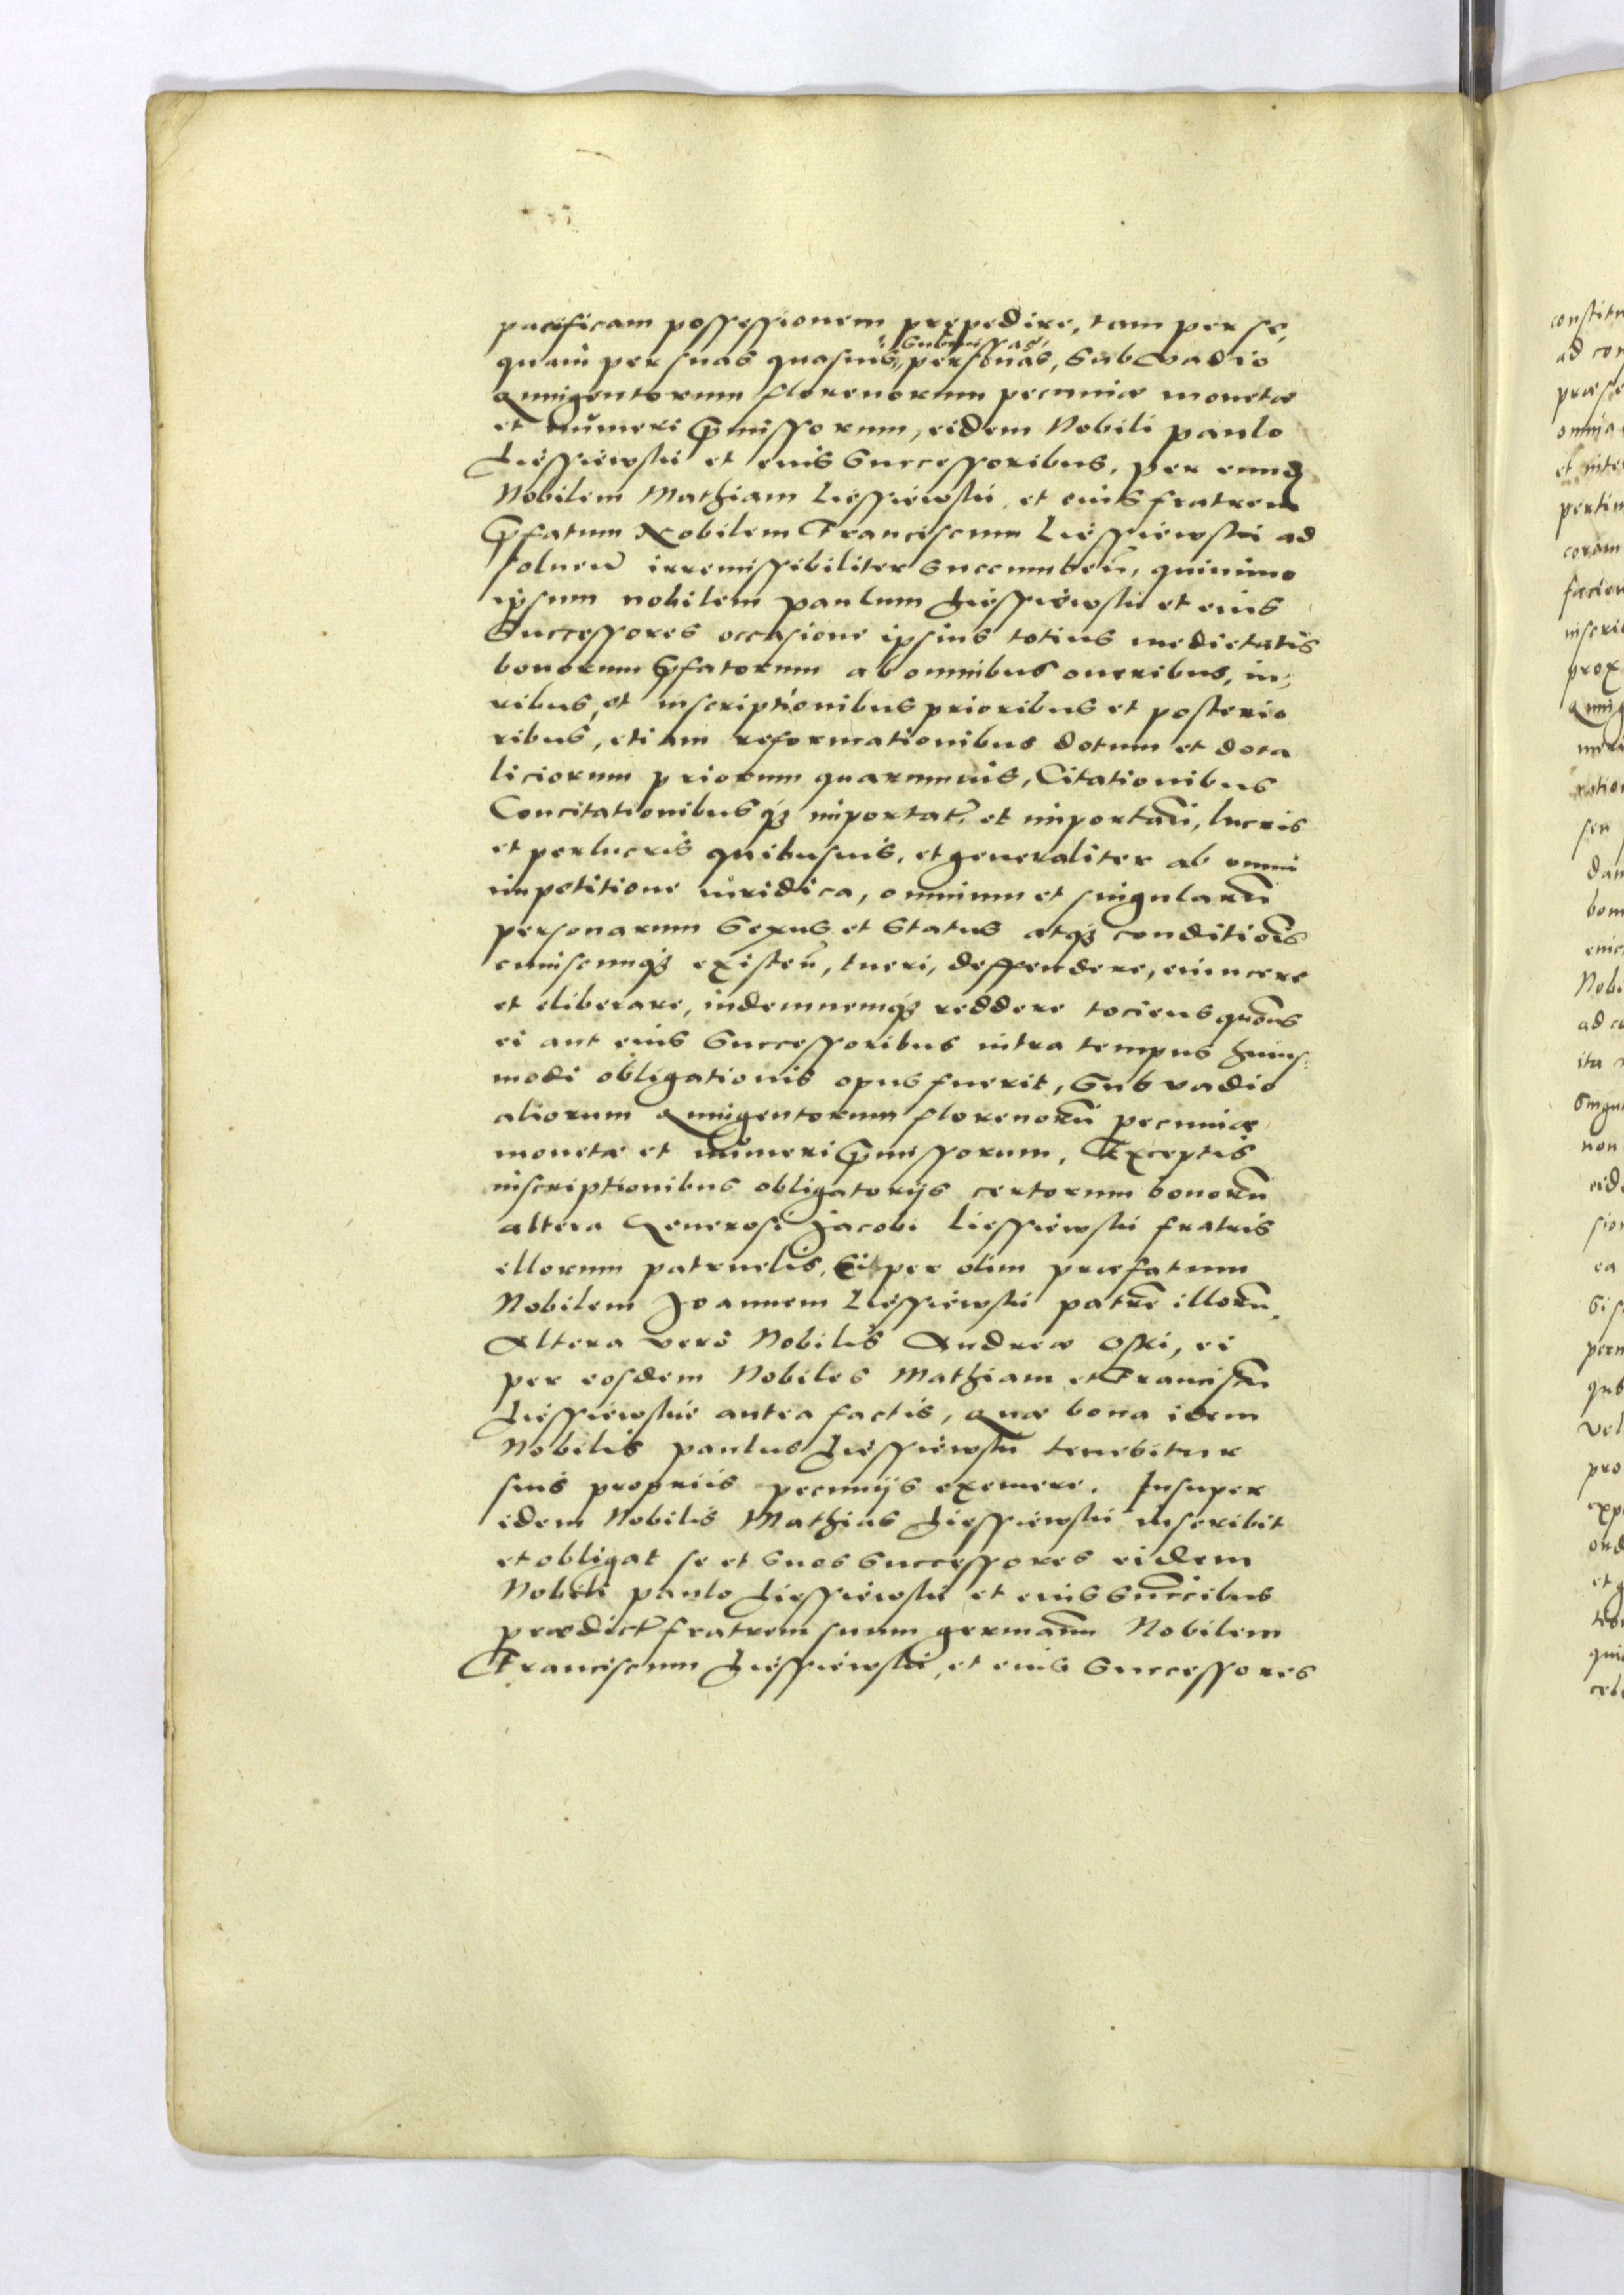 pacificam possessionem prępedire, tam per se,
submissas,
quam per suas quasuis, personas, sub vadio
Quingentorum florenorum pecuniæ monetæ
et numeri p̄missorum, eidem Nobili paulo
Liessiewski et eius Successoribus, per eund
Nobilem Mathiam Liessiewski, et eius fratrem
p̄fatum Nobilem Franciscum Liessiewski ad
soluen̄ irremissibiliter succumben̄, quinimo
ipsum nobilem paulum Liessiewski et eius
Successores occasione ipsius totius medietatis
bonorum p̄fatorum ab omnibus oneribus, iu,
ribus, et inscriptionibus prioribus et posterio
ribus, etiam reformationibus dotum et dota
liciorum priorum quarumuis, Citationibus
Concitationibus qʒ importat̄, et importan̄, lucris
et perlucris quibusuis, et generaliter ab omni
impetitione iuridica, omnium et singularū
personarum Sexus et Status atqʒ conditiōis
cuiuscunqʒ existen̄, tueri, deffendere, euincere
et eliberare, indemnemqʒ reddere tociens quotiēs
ei aut eius Successoribus intra tempus huius
modi obligationis opus fuerit, sub vadio
aliorum Quingentorum florenorū pecuniæ
monetæ et numeri p̄missorum, Exceptis
inscriptionibus obligatorijs certorum bonorū
altera Generosi Jacobi Liessiewski fratris
illorum patruelis, ei per olim præfatum
Nobilem Joannem Liessiewski patrē illorū,
Altera vero Nobilis Andreæ Oski, ei
per eosdem Nobiles Mathiam et Franciscū
Liessiewskie antea factis, Quæ bona idem
Nobilis paulus Liessiewski tenebitur
suis propriis pecunijs exemere. Insuper
idem Nobilis Mathias Liessiewski inscribit
et obligat se et suos successores eidem
Nobili paulo Liessiewski et eius succ̄ibus
prædict̄ fratrem suum germanū Nobilem
Franciscum Liessiewski, et eius Successores